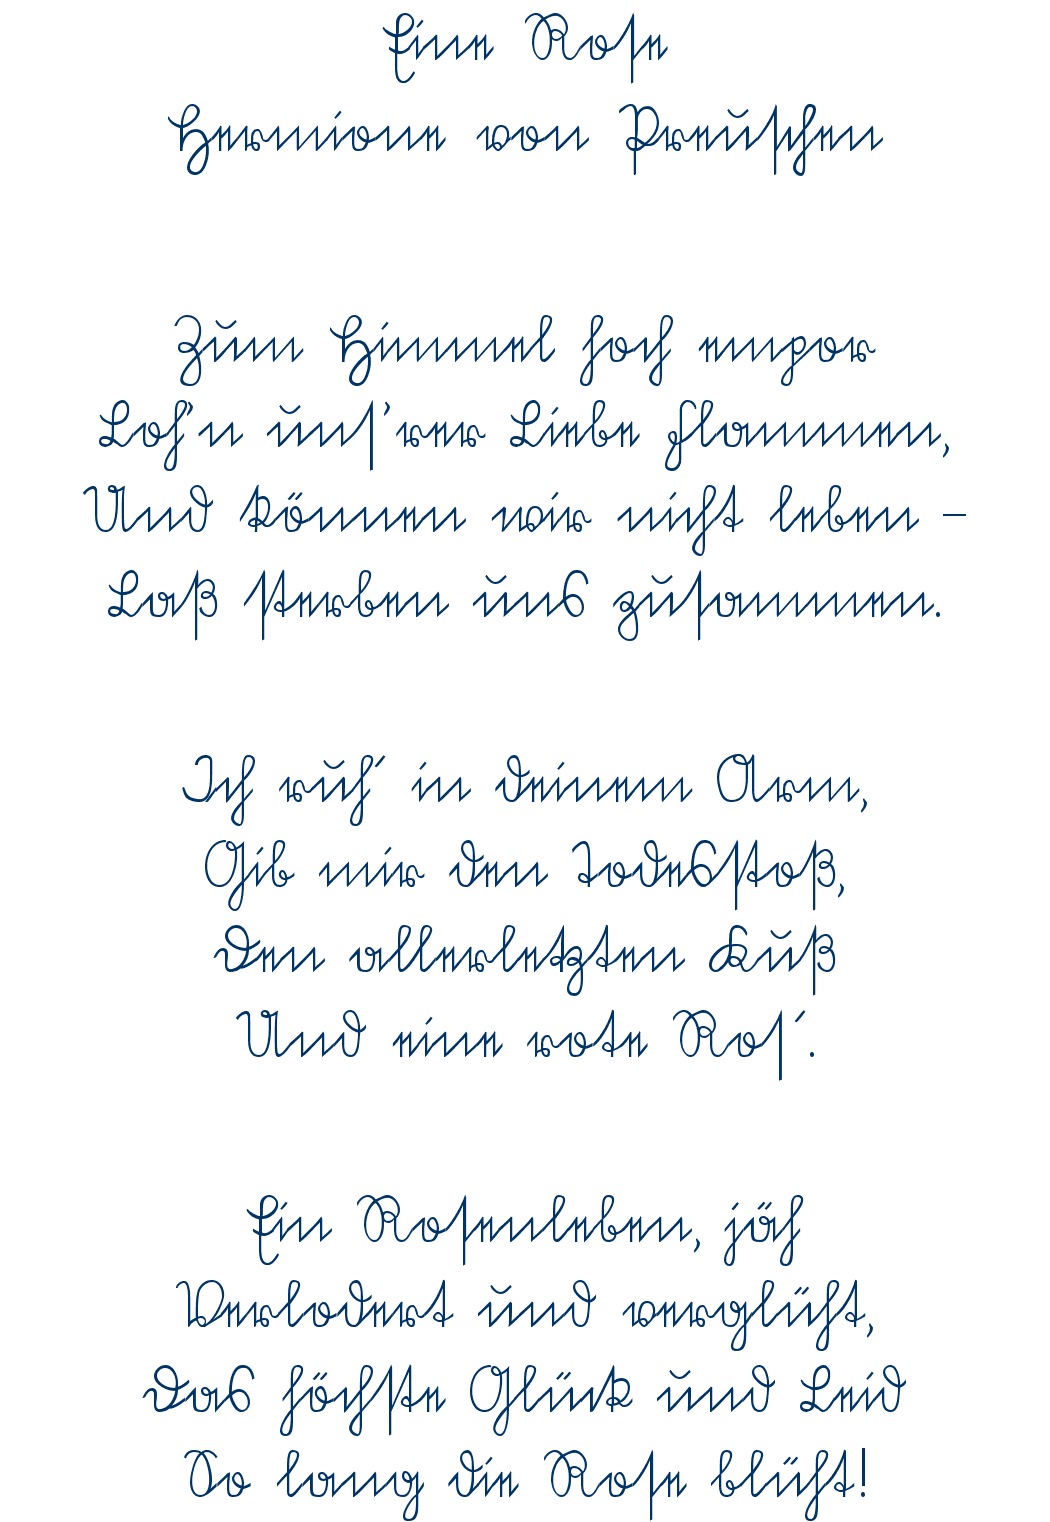 Eine Rose
Hermione von Preuschen
Zum Himmel hoch empor
Loh'n uns'rer Liebe Flammen,
Und können wir nicht leben –
Laß sterben uns zusammen.
Ich ruh´ in deinem Arm,
Gib mir den Todesstoß,
Den allerletzten Kuß
Und eine rote Ros´.
Ein Rosenleben, jäh
Verlodert und verglüht,
Das höchste Glück und Leid
So lang die Rose blüht!